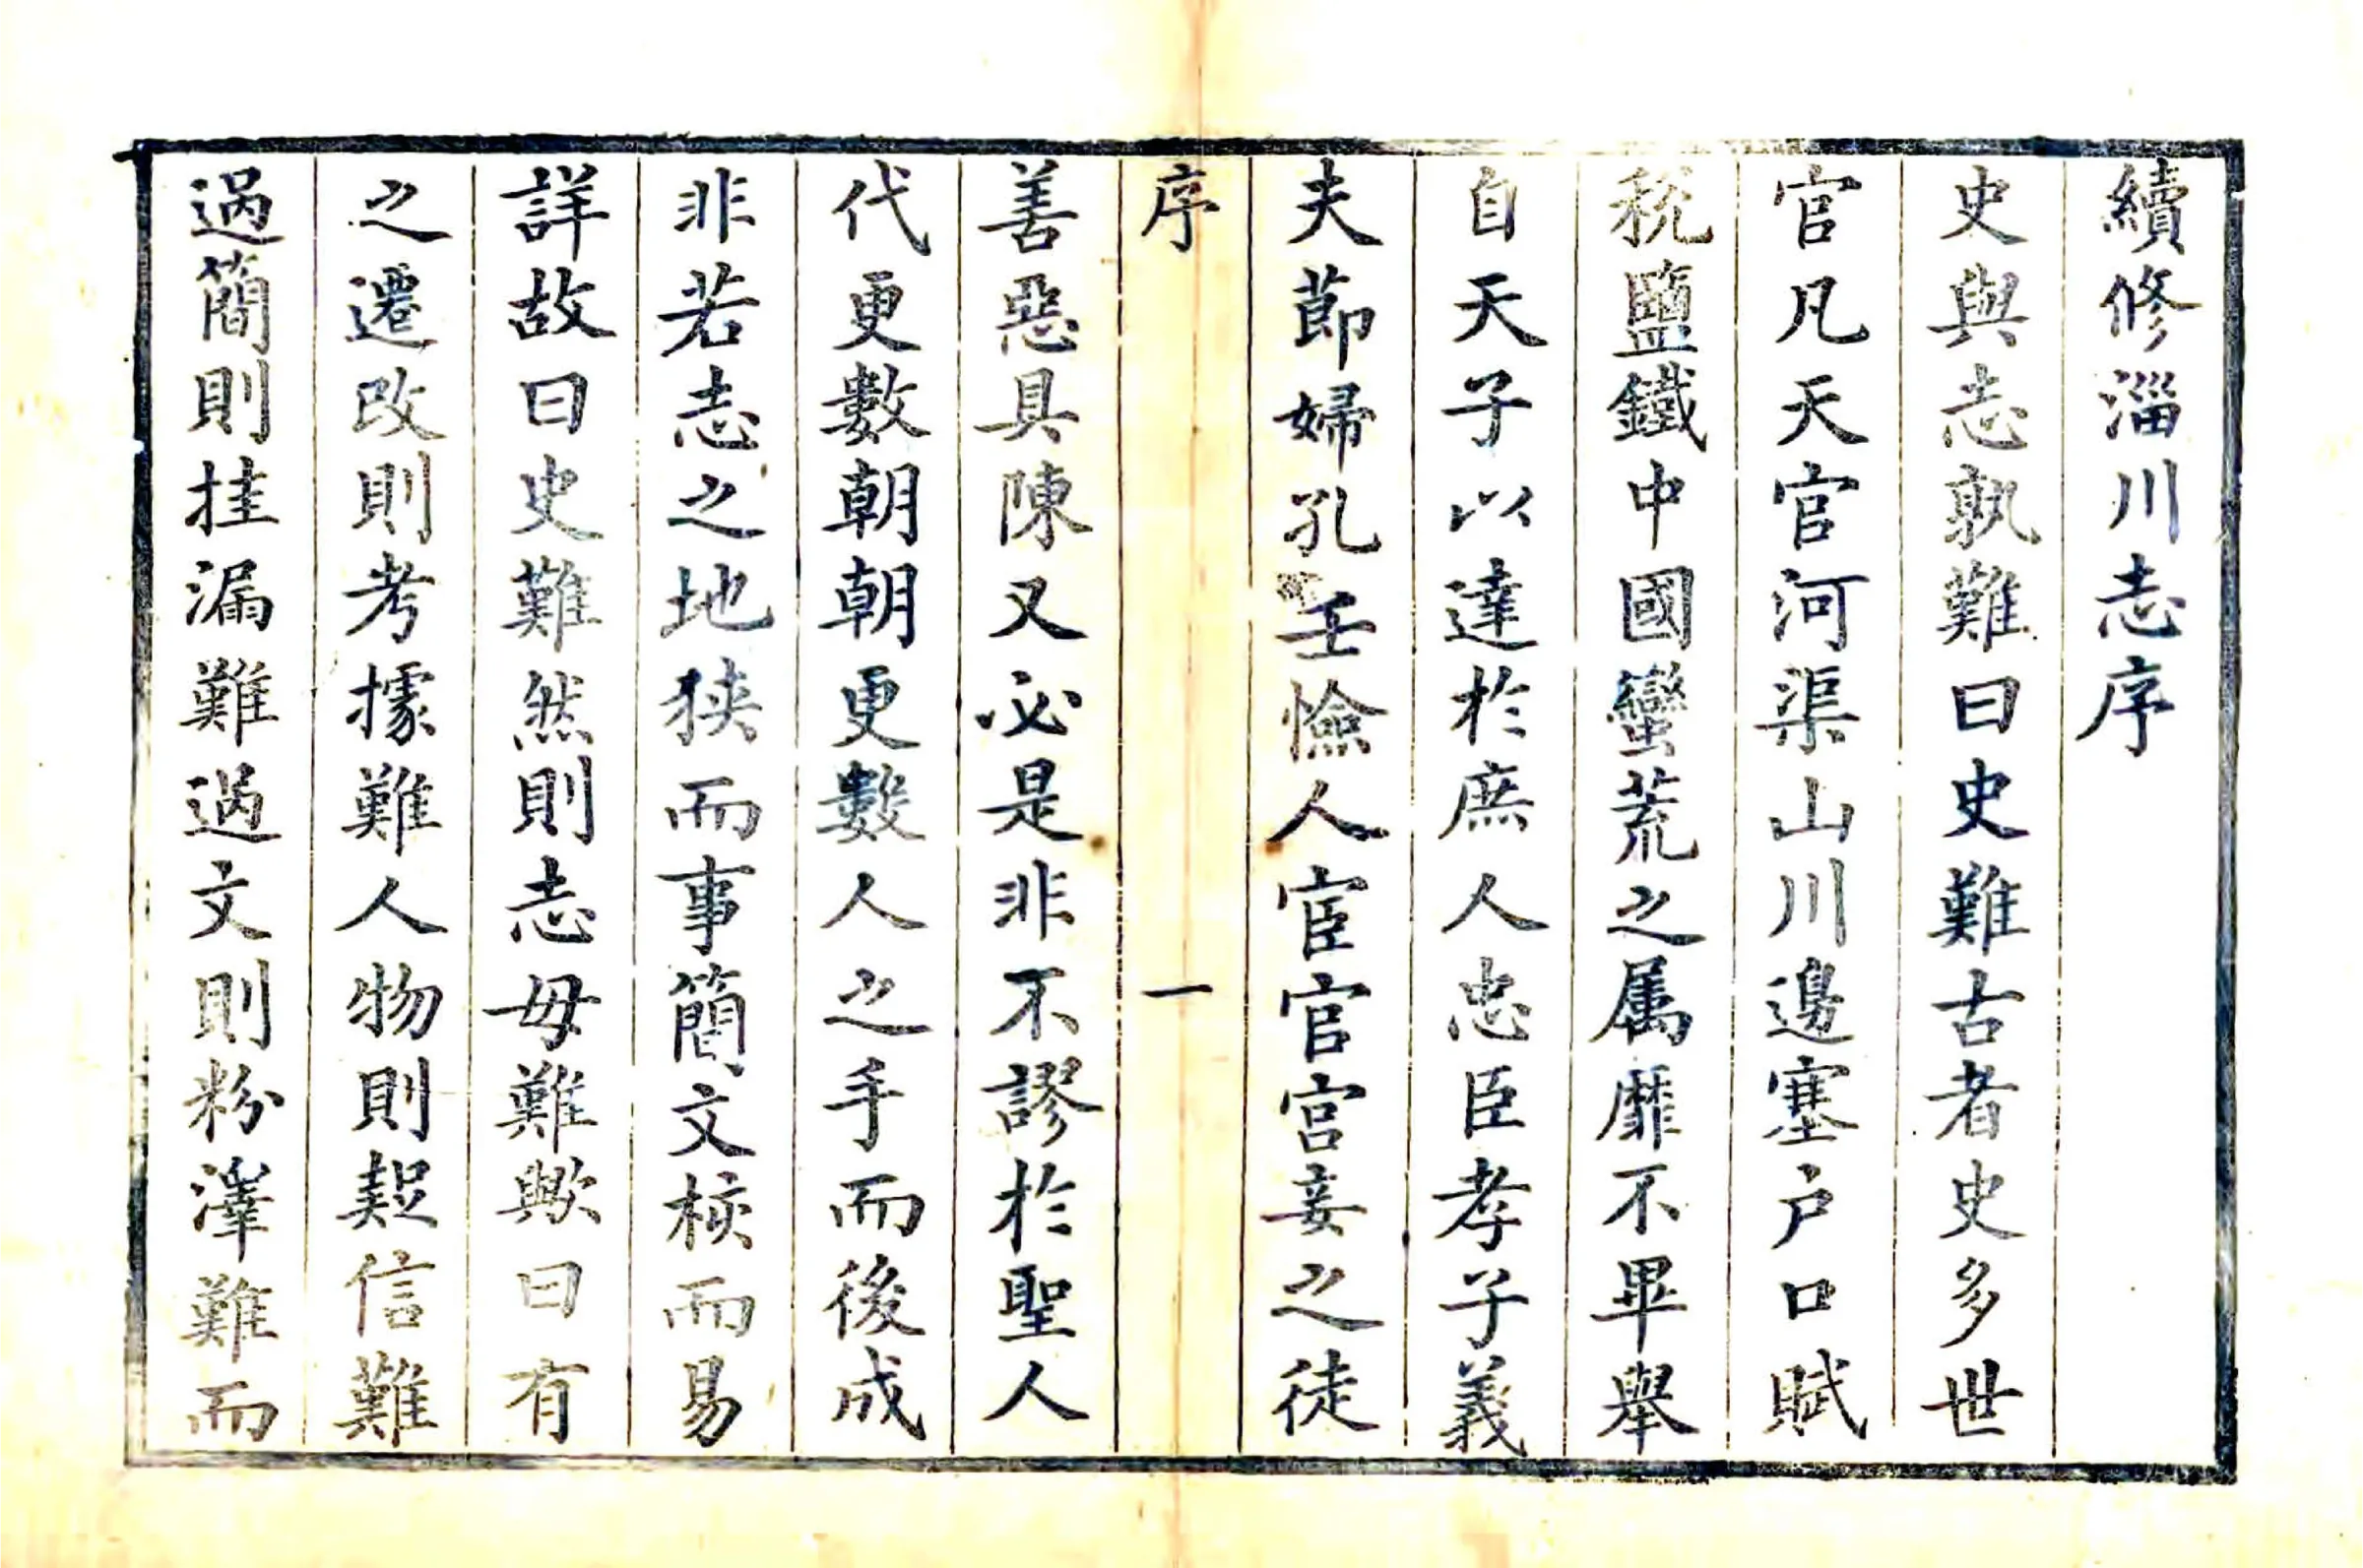 續修淄川志序
史與志孰難曰史難古者史多世
官凡天官河渠山川邊塞户口賦
稅鹽鐵中國蠻荒之属靡不畢舉
自天子以達於庶人忠臣孝子義
夫節婦孔壬憸人宦官宫妾之徒
序 一
善惡具陳又必是非不謬於聖人
代更數朝朝更數人之手而後成
非若志之地狹而事簡文核而易
詳故曰史難然則志毋難歟曰有
之遷改則考據難人物則起信難
過簡則挂漏難過文則粉澤難而